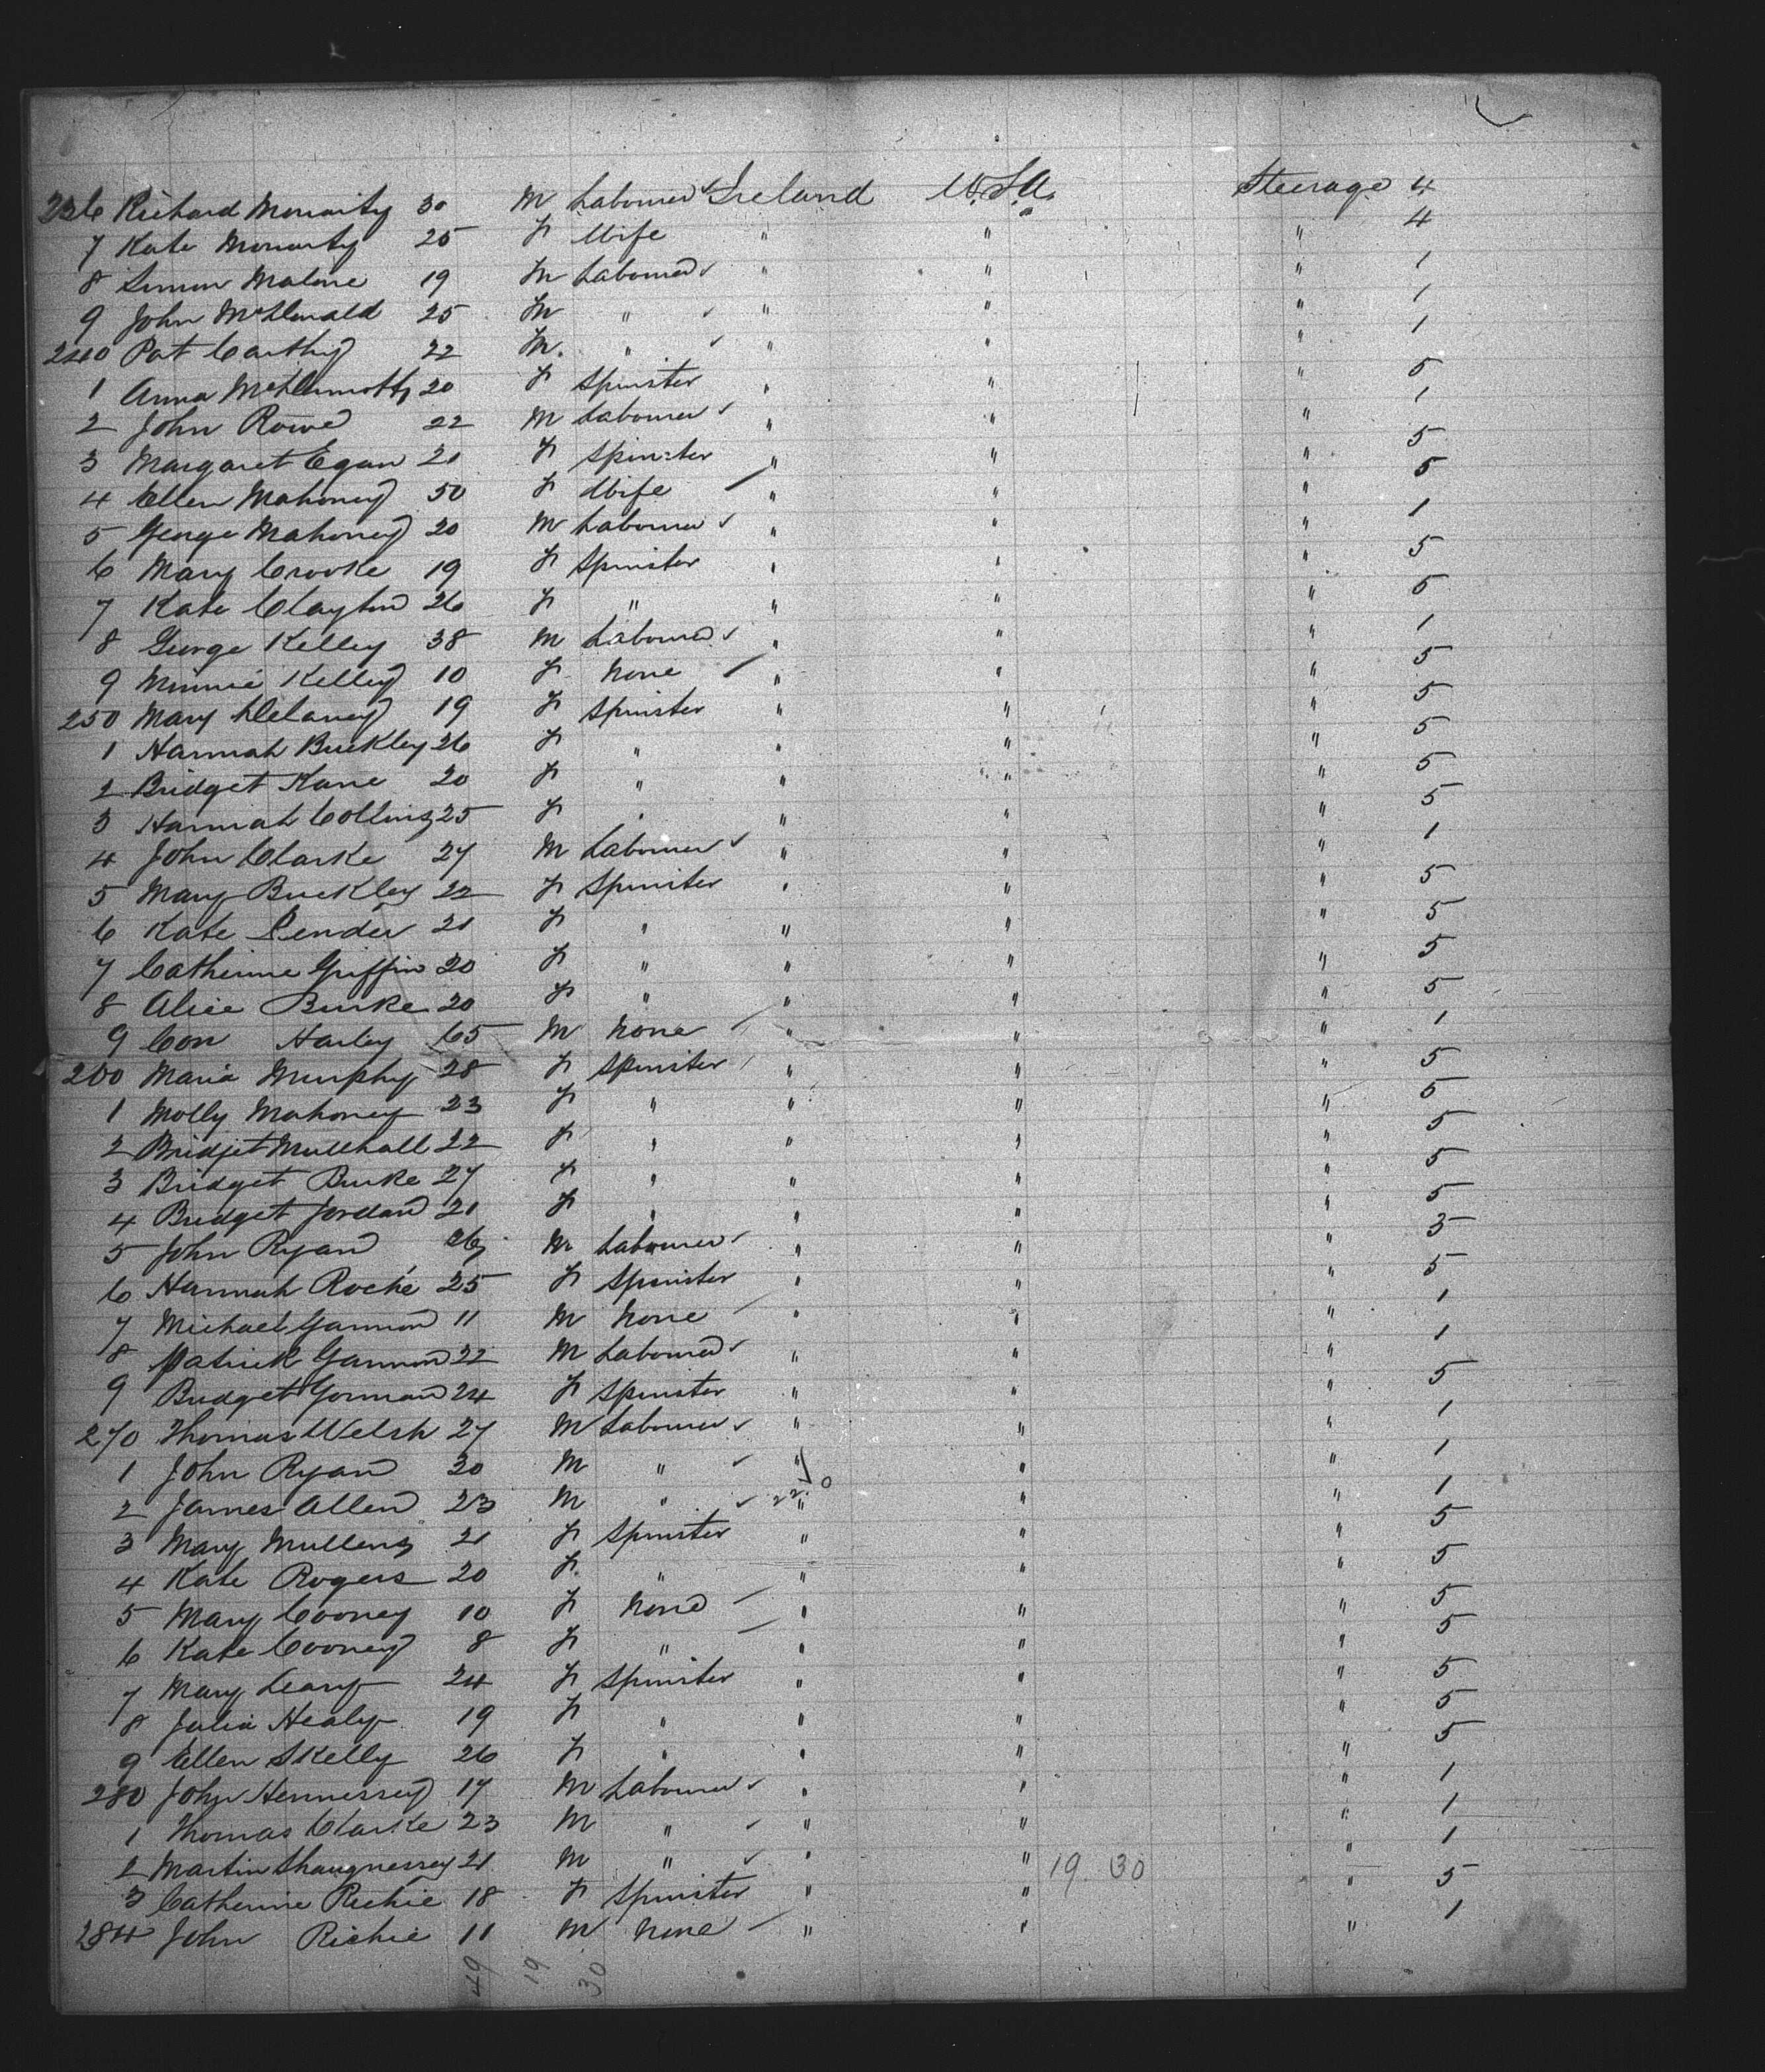 236 Richard Moriarity 30 M Labourer Ireland U.S.A. Steerage 4
7 Kate Moriarty 25 F Wife " " " 4
8 Simon Malone 19 M Labourer " " " 1
9 John McDonald 25 M " " " " 1
240 Pat Carthy 22 M " " " " 1
1 Anna McDermott 20 F Spinster " " " 5
2 John Rowe 22 M Labourer " " " 1
3 Margaret Egan 21 F Spinster " " " 5
4 Ellen Mahoney 50 F Wife " " " 5
5 George Mahoney 20 M Labourer " " " 1
6 Mary Crooke 19 F Spinster " " " 5
7 Kate Clayton 26 F " " " " 5
8 George Kelley 38 M Labourer " " " 1
9 Minnie Kelley 10 F None " " " 5
250 Mary Delaney 19 F Spinster " " " 5
1 Hannah Buckley 26 F " " " " 5
2 Bridget Kane 20 F " " " " 5
3 Hannah Collins 25 F " " " " 5
4 John Clarke 27 M Labourer " " " 1
5 Mary Buckley 22 F Spinster " " " 5
6 Kate 21 F " " " " 5
7 Catherine Griffin 20 F " " " " 5
8 Alice Burke 20 F " " " " 5
9 Con Harley 65 M None " " " 1
260 Maria Murphy 28 F Spinster " " " 5
1 Molly Mahoney 23 F " " " " 5
2 Bridjet Mullhall 22 F " " " " 5
3 Bridget Burke 27 F " " " " 5
4 Bridget Jordan 21 F " " " " 5
5 John Ryan 26 M Labourer " " " 5
6 Hannah Roche 25 F Spinster " " " 5
7 Michael Gannon 11 M None " " " 1
8 Patrick Gannon 22 M Labourer " " " 1
9 Bridget Gorman 24 F Spinster " " " 5
270 Thomas Welsh 27 M Labourer " " " 1
1 John Ryan 30 M " " " " 1
2 James Allen 23 M " " " " 1
3 Mary Mullens 21 F Spinster " " " 5
4 Kate Rogers 20 F " " " " 5
5 Mary Cooney 10 F None " " " 5
6 Kate Cooney 8 F " " " " 5
7 Mary Leary 24 F Spinster " " " 5
8 Julia Healy 19 F " " " " 5
9 Ellen Skelly 26 F " " " " 5
280 John Hennessey 17 M Labourer " " " 1
1 Thomas Clarke 23 M " " " " 1
2 Martin Shaugnessey 21 M " " " 19 30 " 1
3 Catherine Richie 18 F Spinster " " " 5
284 John Richie 11 M None " " " 1
49 19 30